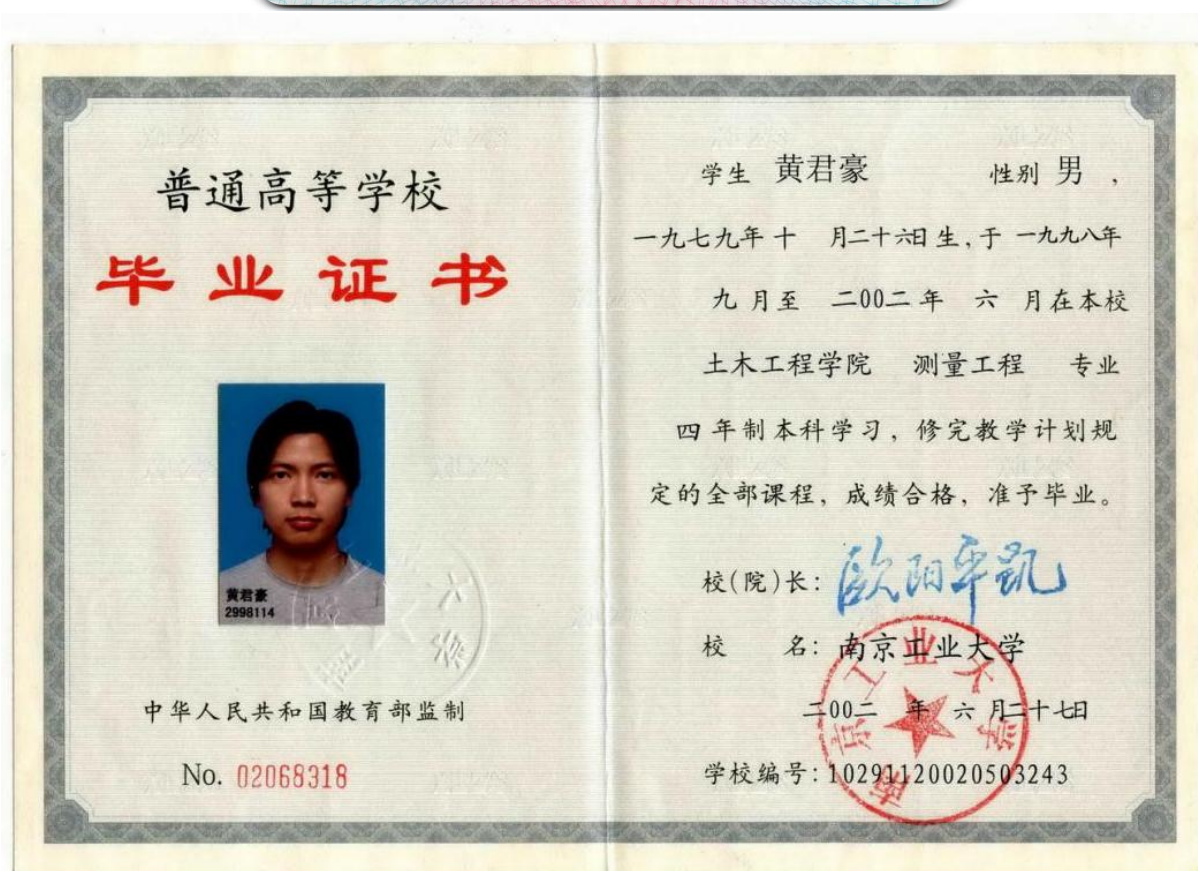 普通高等学校
毕业证书
黄君豪
2998114
中华人民共和国教育部监制
No. 02068318
学生 黄君豪 性别 男 ,
一九七九年 十 月二十六日生,于 一九九八年
九 月至 二00二 年 六 月在本校
土木工程学院 测量工程 专业
四 年制本科学习, 修完教学计划规
定的全部课程, 成绩合格, 准予毕业。
校(院)长: 欧阳平凯
校 名: 南京工业大学
二00二 年 六 月二十七日
学校编号: 102911200205003243
南京工业大学